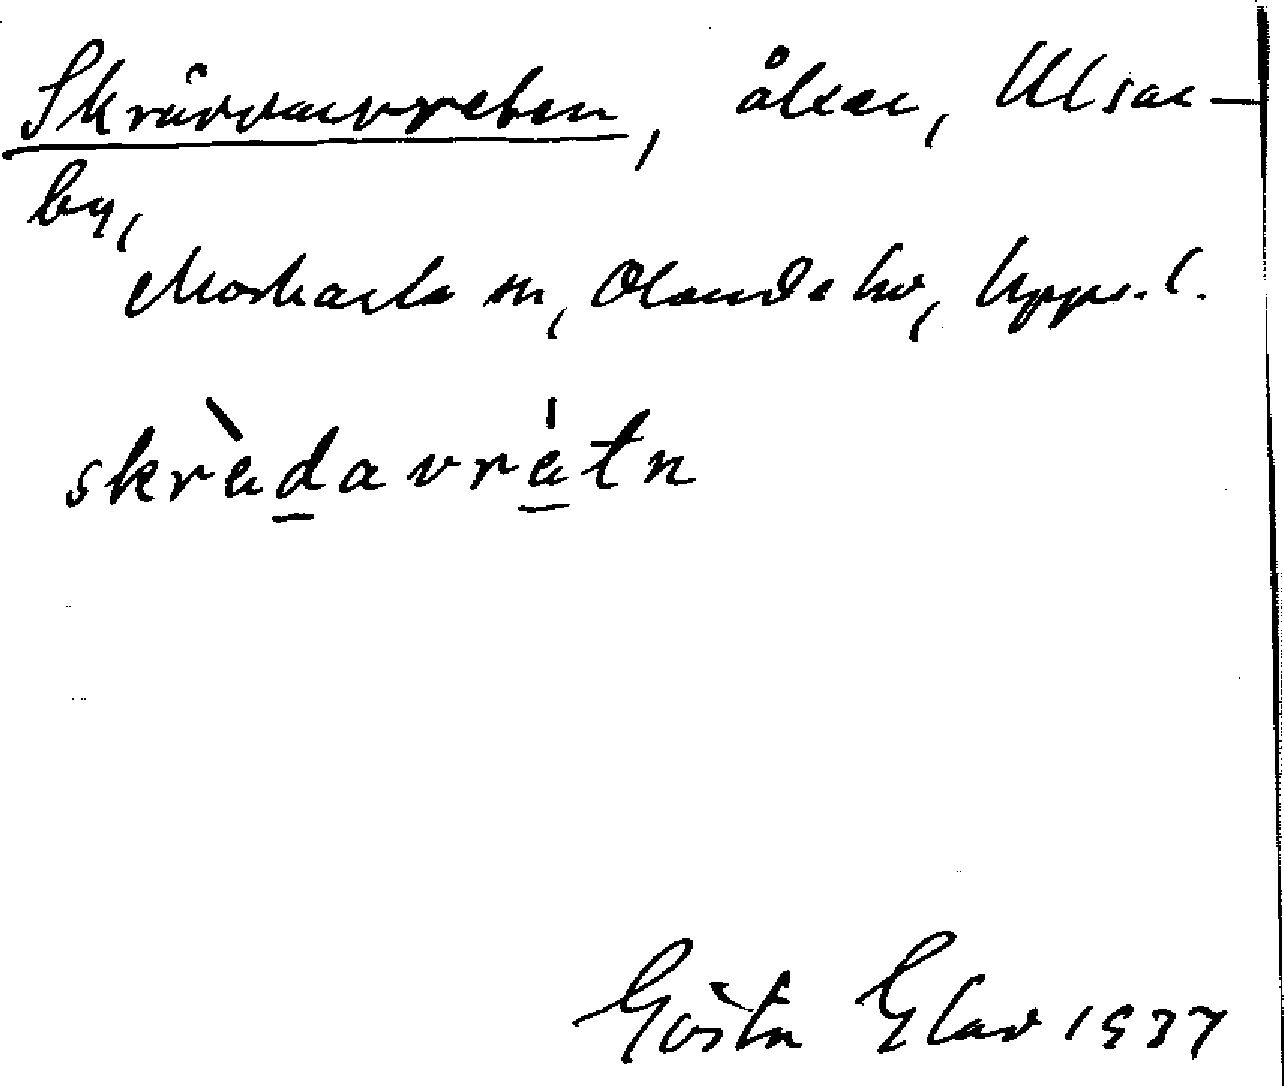 Skräddarvreten, åker, Ulsar-
by,
Morkarla sn, Olands hd, Uppl.
skrädavrätn
Gösta Elav 1937